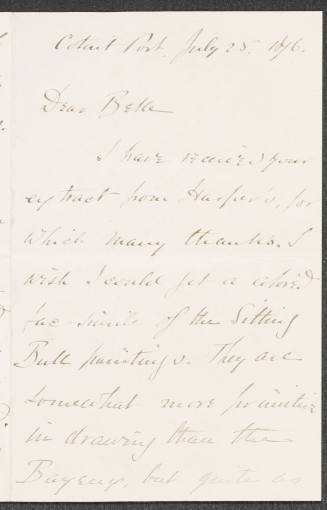 Cotuit Port, July 25, 1876.
Dear Belle
I have received your
extract from Harper's, for
which many thanks. I
wish I could get a colored
fac-simile of the Sitting
Bull paintings. They are
somewhat more primitive
in drawing than the
Bayeux, but quite as